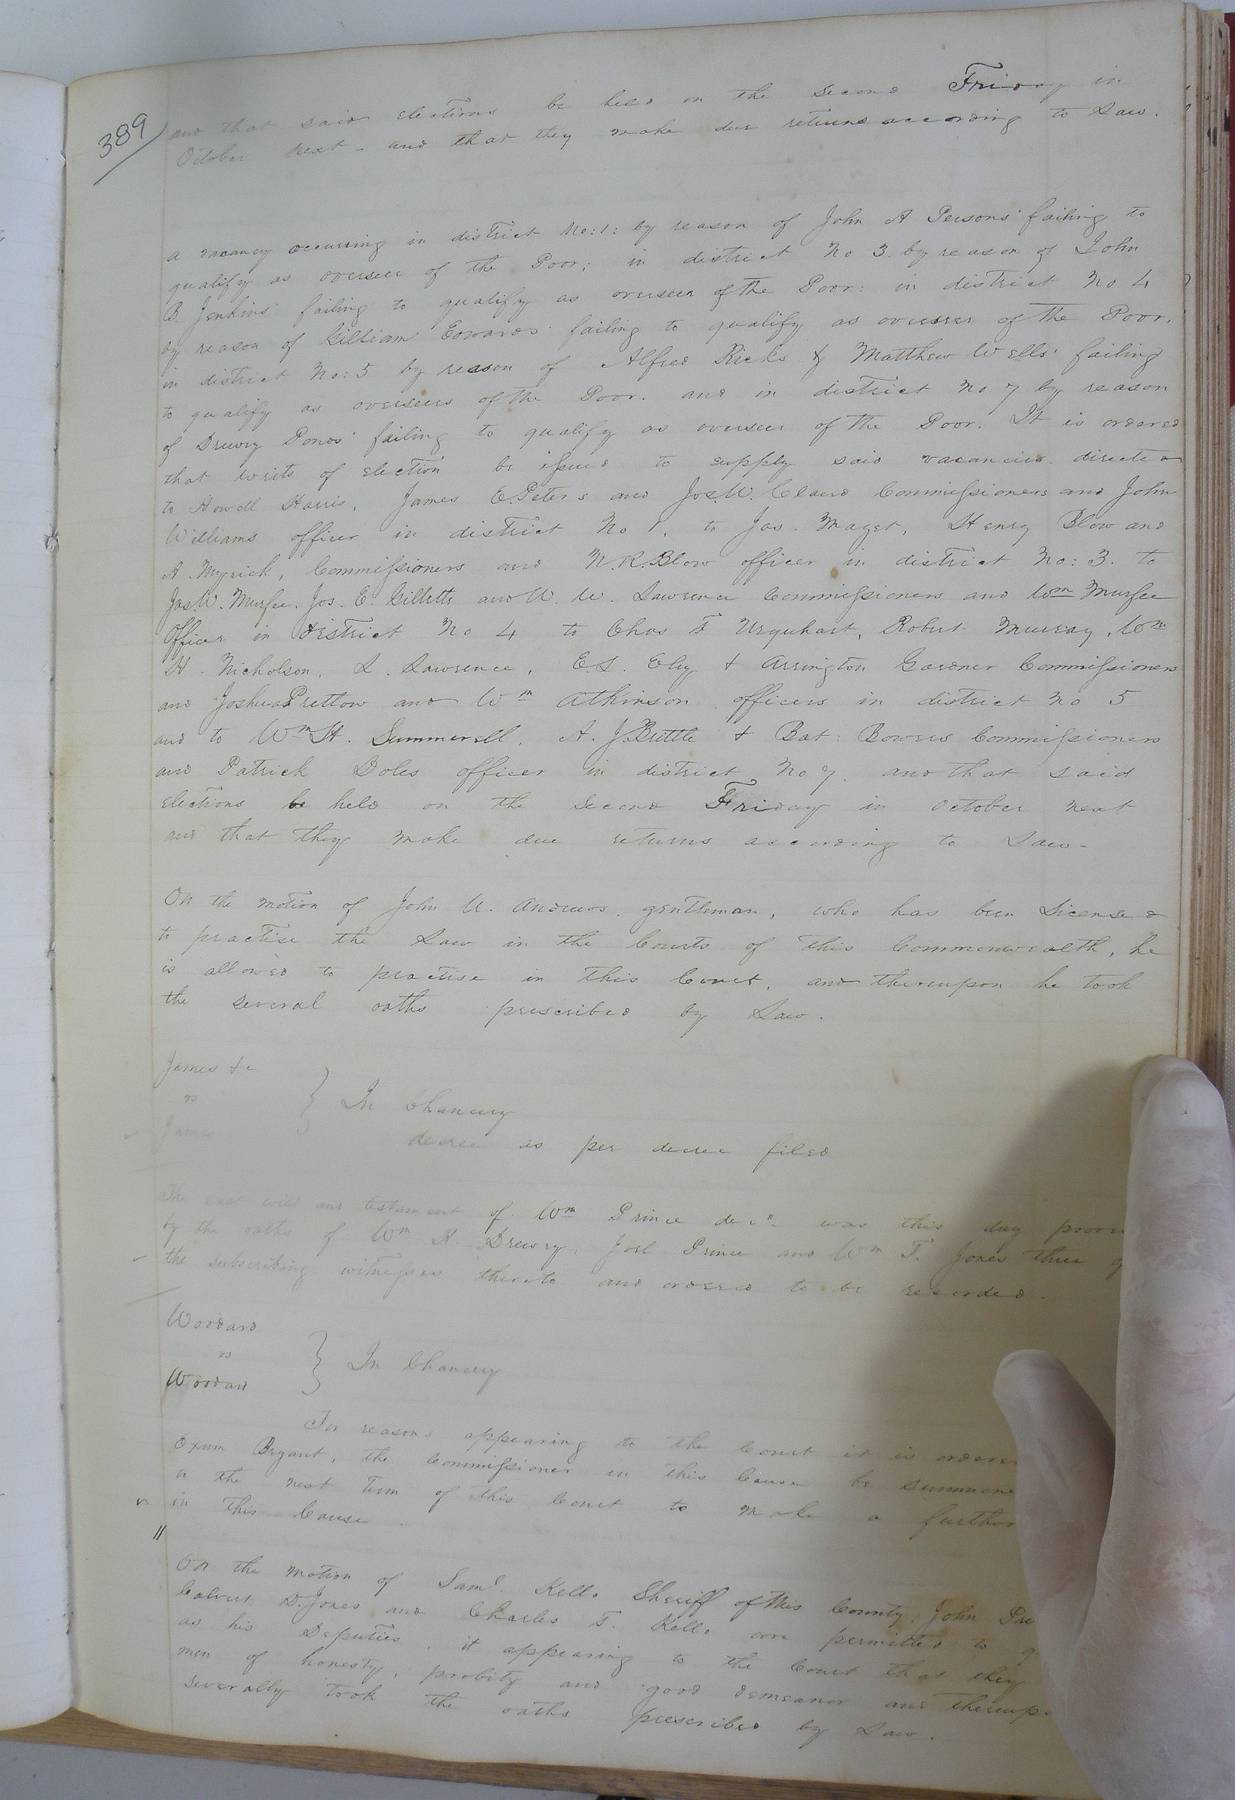 389
and that said elections be held on the second Friday in
October next - and that they make due returns according to Law.
A vacancy occurring in district No: 1: by reason of John A Persons' failing to
qualify as overseer of the Poor; in district No 3. by reason of John
B Jenkins' failing to qualify as overseer of the Poor: in district No 4
by reason of William Edwards' failing to qualify as overseer of the Poor.
in district No: 5 by reason of Alfred Ricks & Matthew Wells' failing
to qualify as overseers of the Poor. and in district No 7 by reason
of Drewry Ponds' failing to qualify as overseer of the Poor. It is ordered
that writs of election be issued to supply said vacancies directed
to Howell Harris, James E. Peters and Jos. W. Claud Commissioners and John
Williams officer in district No 1, to Jas. Maget, Henry Blow and
A. Myrick, Commissioners and N. R. Blow officer in district No: 3. to
Jas. W. Murfee, Jos. E. Gillette and W. W. Lawrence Commissioners and Wm Murfee
officer in district No 4 to Chas F Urquhart, Robert Murray, Wm
H. Nicholson, L. Lawrence, E. S. Eley & Arrington Gardner Commissioners
and Joshua Prettow and Wm Atkinson officers in district No 5
and to Wm H. Summerell, A. J. Brittle & Bat: Bowers Commissioners
and Patrick Doles officer in district No 7. and that said
elections be held on the second Friday in October next
and that they make due returns according to Law -
On the motion of John U. Andrews, gentleman, who has been Licensed
to practise the Law in the Courts of this Commonwealth, he
is allowed to practise in this Court, and thereupon he took
the several oaths prescribed by Law.
James &c
vs
James
} In Chancery
decree as per decree filed
The last will and testament of Wm Prince decd. was this day proved
by the oaths of Wm H. Drewry, Joel Prince and Wm T. Jones three of
the subscribing witnesses thereto and ordered to be recorded.
Woodard
vs
Woodard
} In Chancery
For reasons appearing to the Court it is ordered
Exum Bryant, the Commissioner in this Cause be summoned
to the next term of this Court to make a further
in this Cause.
On the motion of Saml. Kello Sheriff of this County, John
Calvert D. Jones and Charles F. Kello are permitted to
as his Deputies, it appearing to the Court that they
men of honesty, probity and good demeanor and thereup
severally took the oaths prescribed by Law.